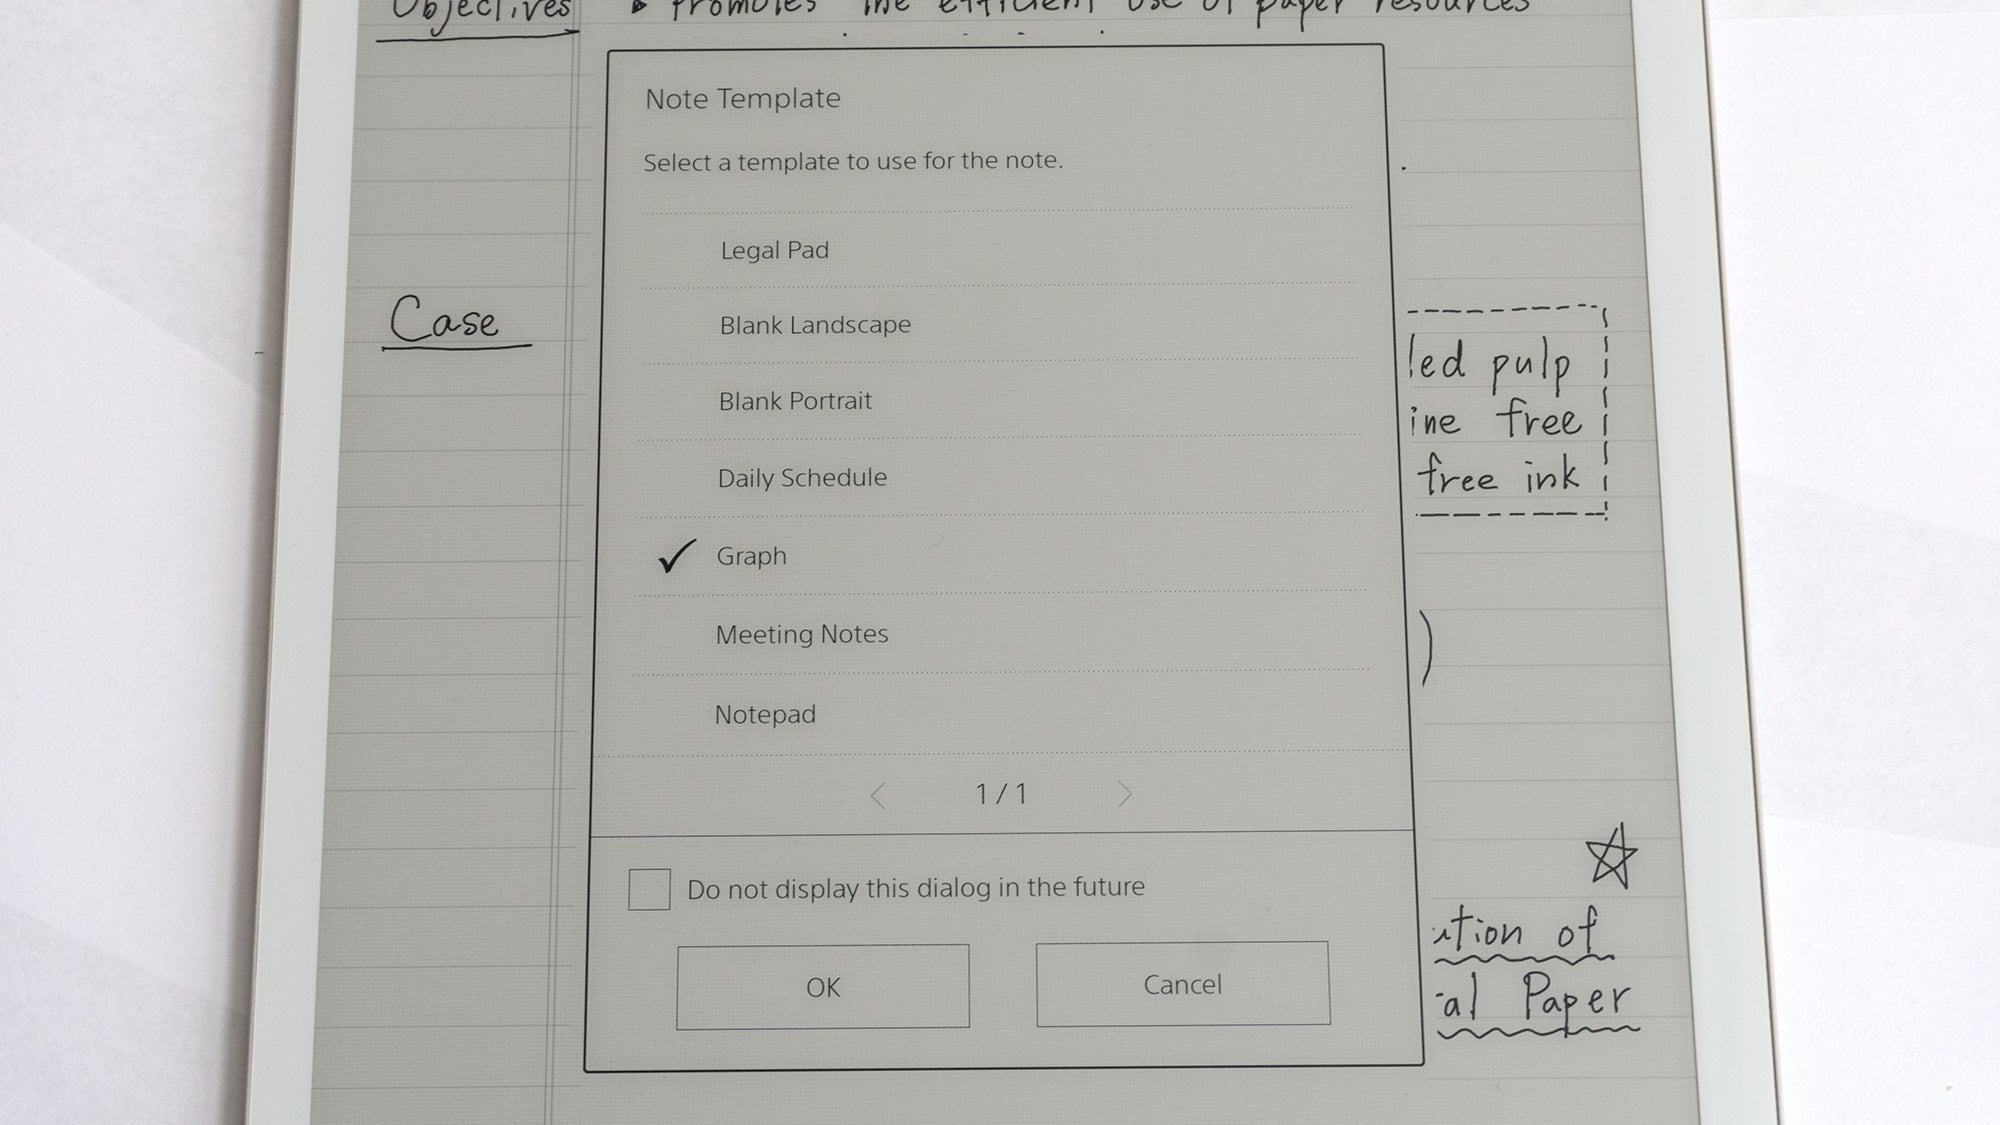 Objectives ▸ Promotes the efficient use of paper resources
Note Template
Select a template to use for the note.
Legal Pad
Blank Landscape
Case
Blank Portrait
led pulp
ine free
Daily Schedule
free ink
✓ Graph
Meeting Notes
)
Notepad
< 1 / 1 >
Do not display this dialog in the future
ution of
OK Cancel
al Paper